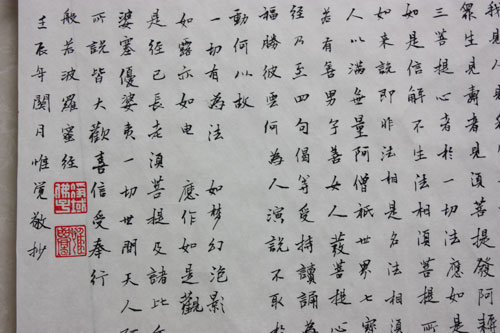 我見人見
眾生見壽者見須菩提發阿耨
三菩提心者於一切法應如是
如是信解不生法相須菩提所
如来說即非法相是名法相須
人以滿無量阿僧祇世界七寶
若有善男子善女人發菩提心
經乃至四句偈等受持讀誦為
福勝彼雲何為人演說不取於
動何以故
一切有為法 如梦幻泡影
如露亦如电 應作如是觀
是經已長老須菩提及諸比丘
婆塞優婆夷一切世間天人阿
所說皆大歡喜信受奉行
般若波羅蜜經
壬辰年閏月惟覺敬抄